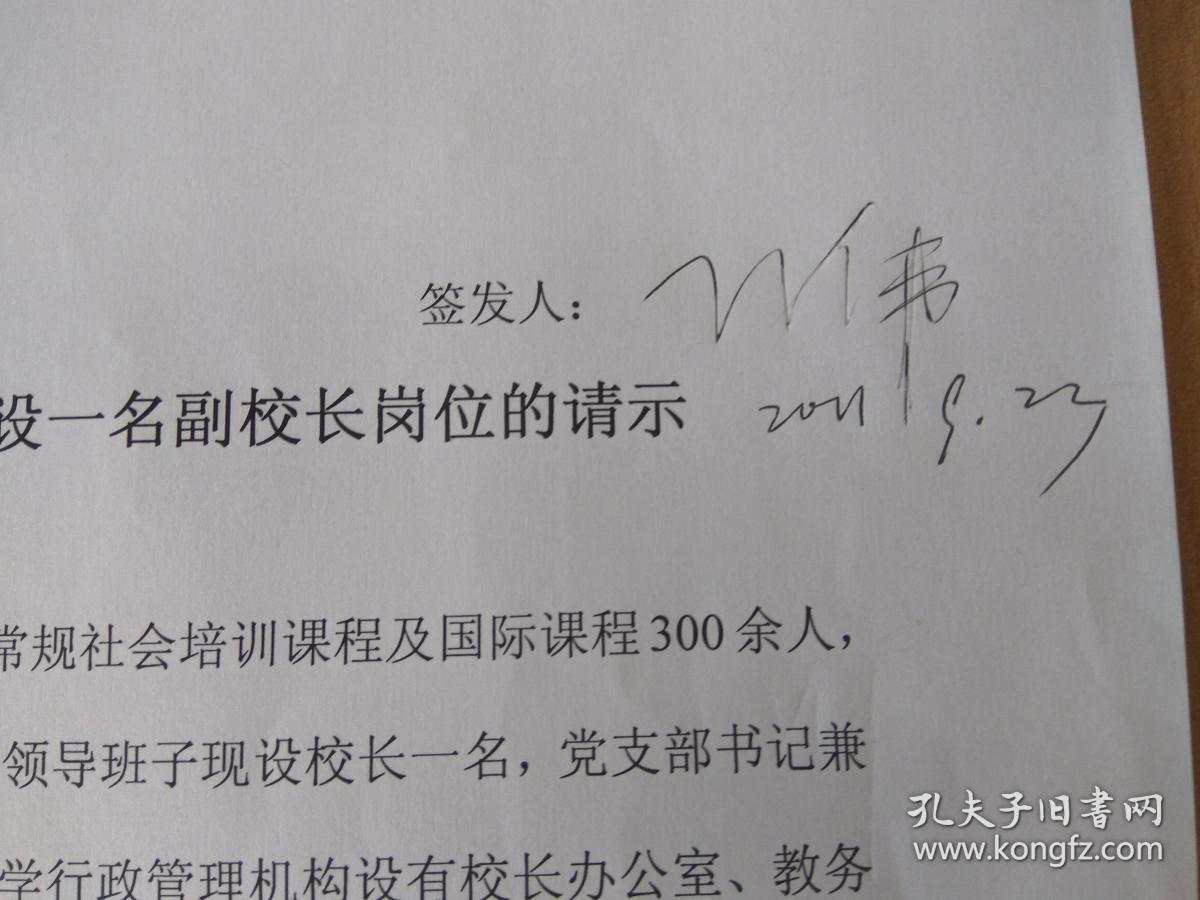 签发人：
设一名副校长岗位的请示
2011 9.23
常规社会培训课程及国际课程300余人，
领导班子现设校长一名，党支部书记兼
学行政管理机构设有校长办公室、教务
孔夫子旧書网
www.kongfz.com